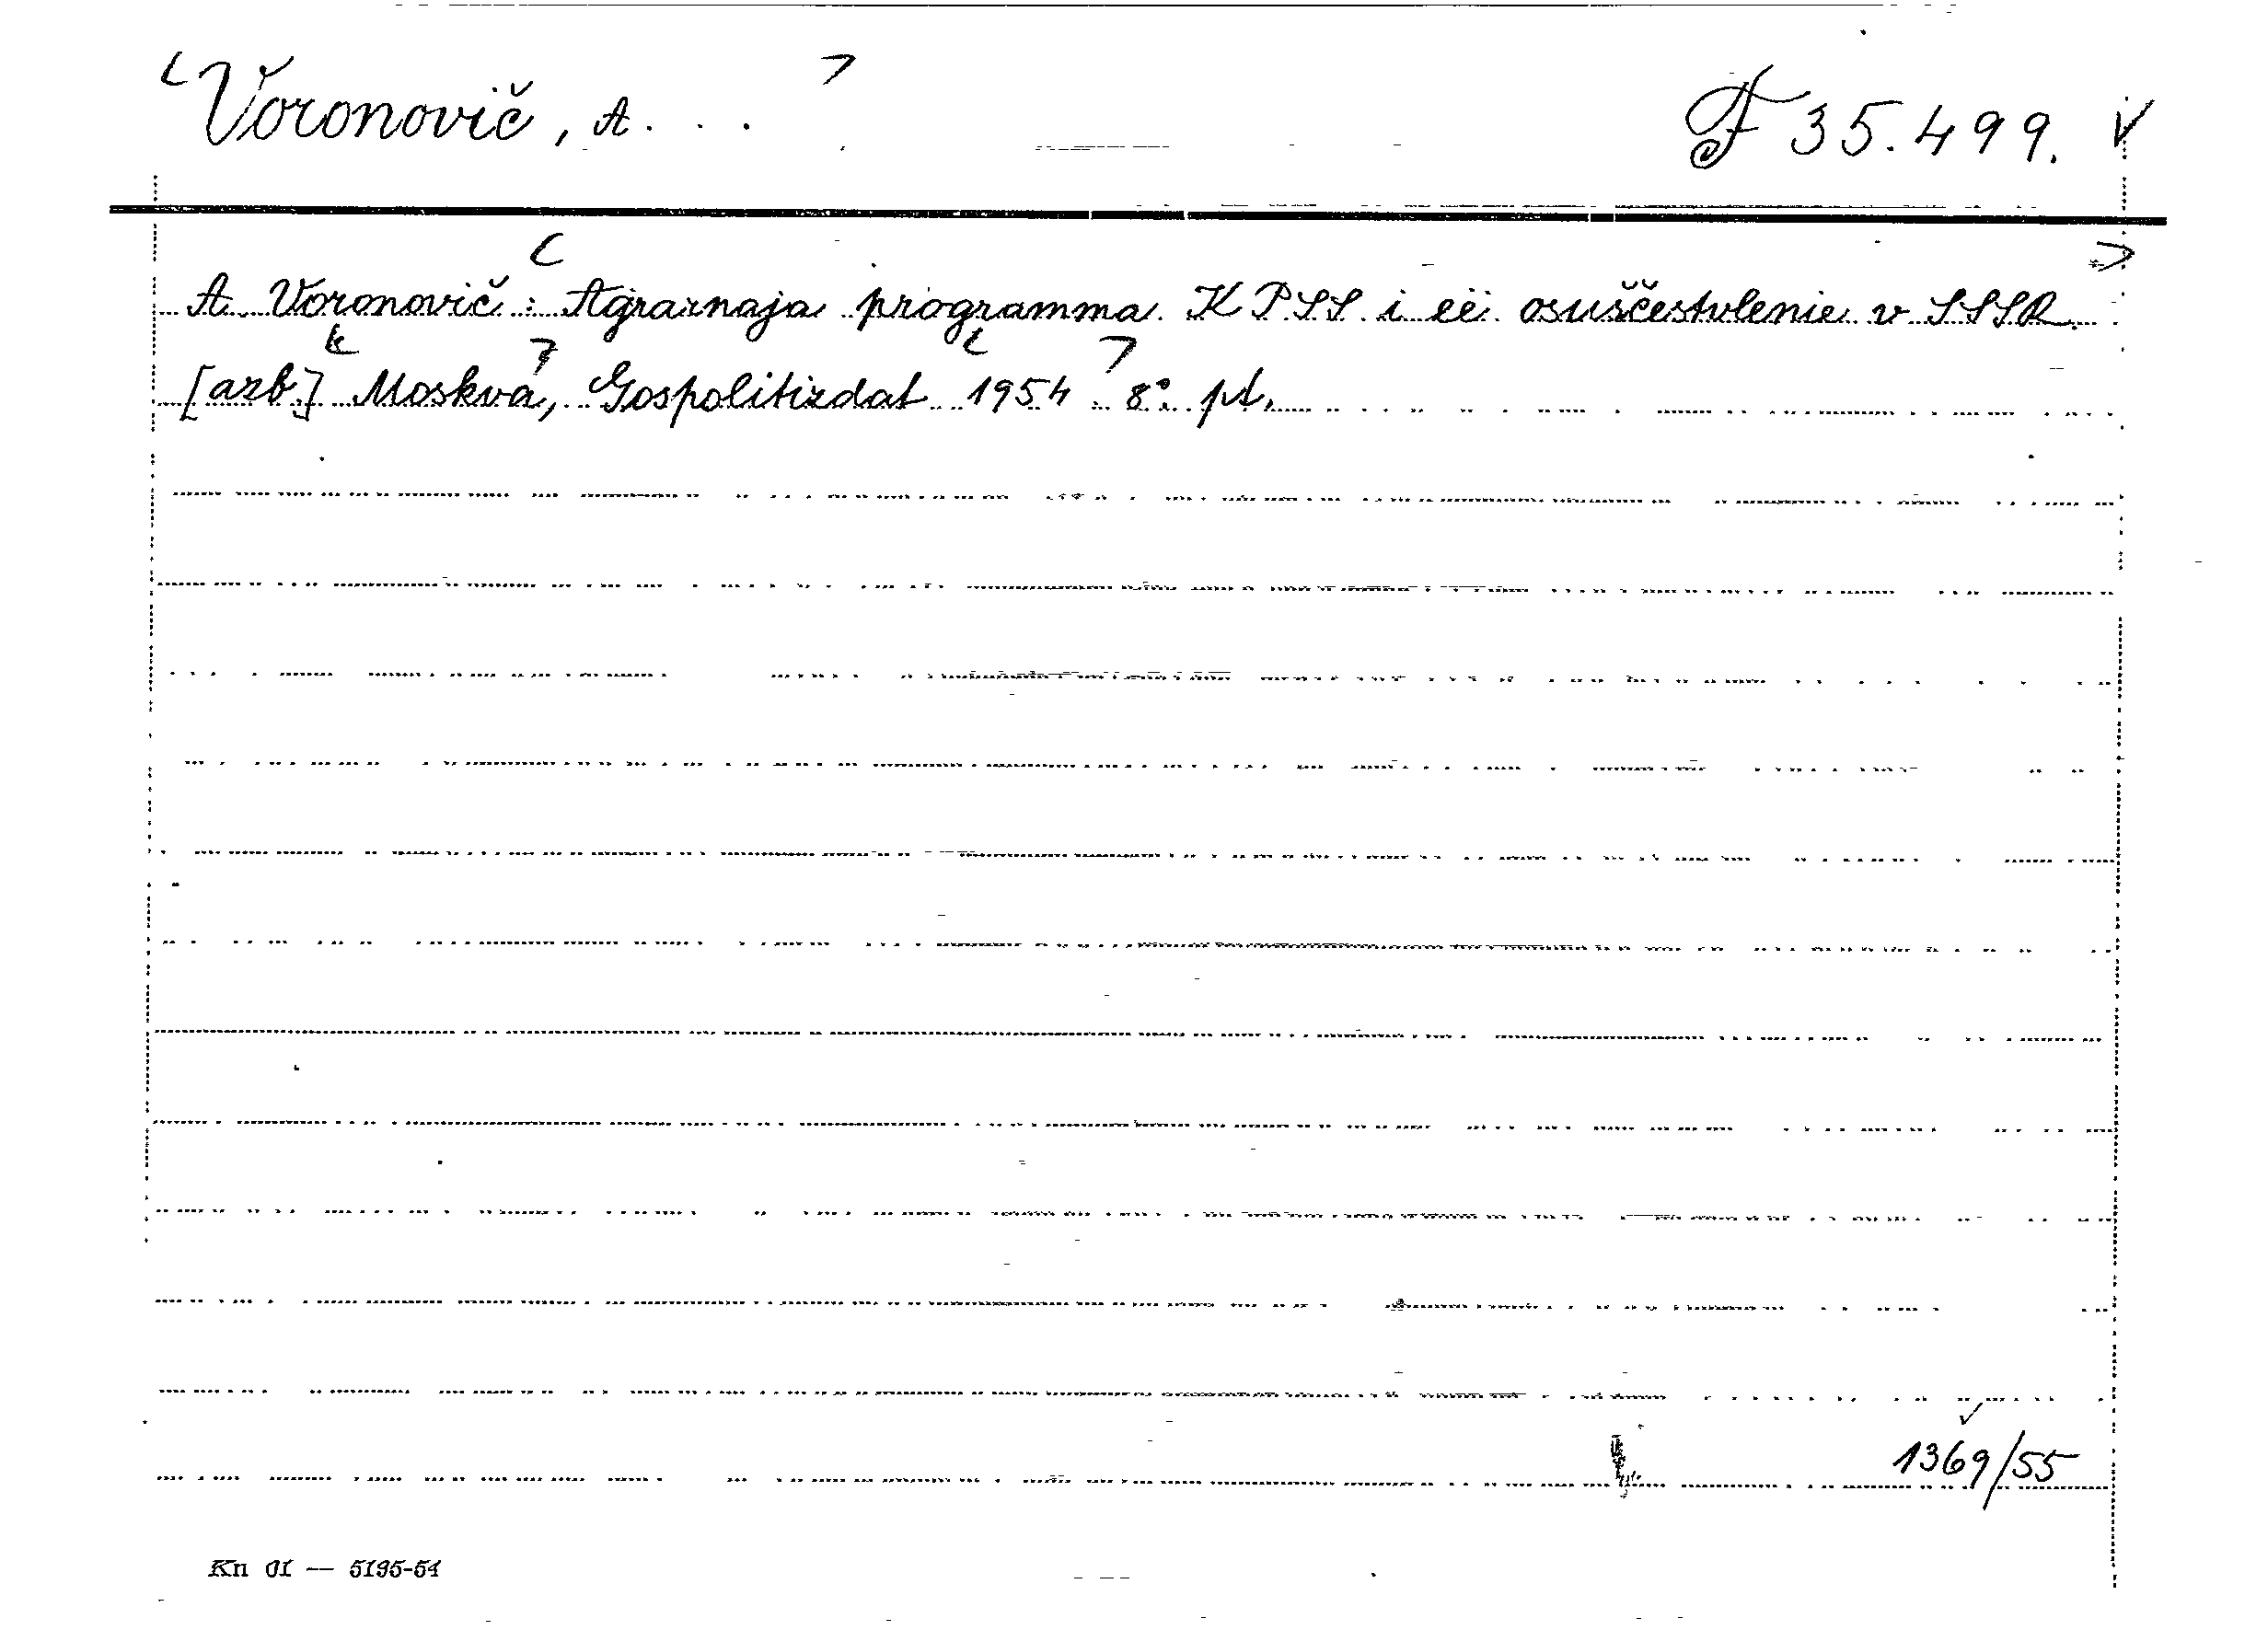 Voronovič, A...
F 35.499.
A. Voronovič: Agrarnaja programma KPSS i eë osuščestvlenie v SSSR.
[azb.] Moskva, Gospolitizdat 1954. 8°. pt.
1369/55
Kn 01 — 5195-54